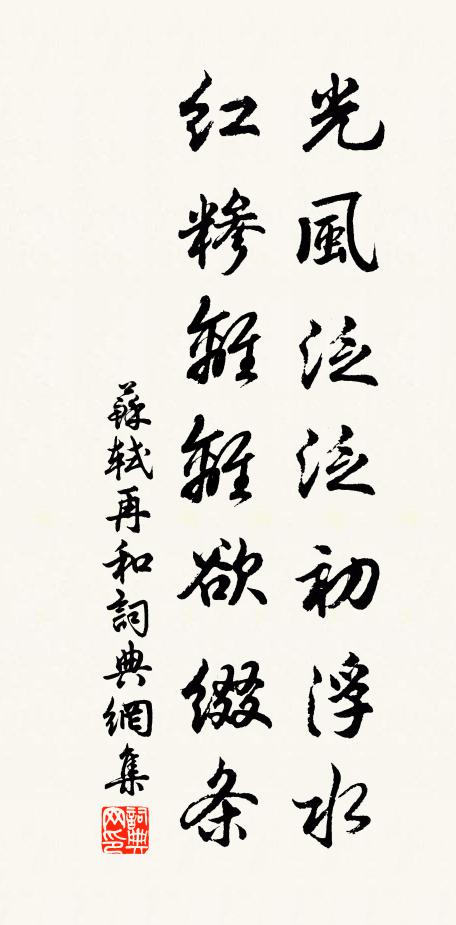 光風泛泛初浮水
紅糝離離欲綴条
蘇軾再和詞典網集
詞典网印